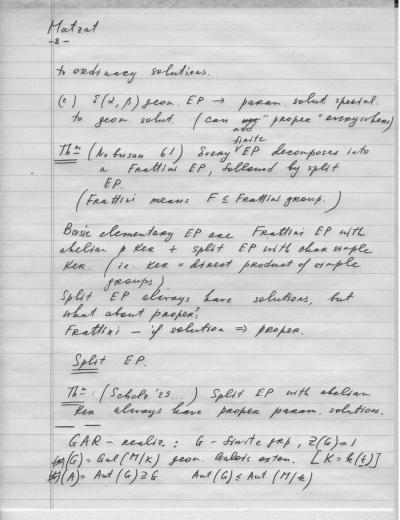 Matzat
-8-
to ordinary solutions.
(c) ε(α, β) geom. EP → param. solut special.
to geom. solut. (can add "proper" everywhere)
finite
Thm (Nobusau 61) Every EP decomposes into
a Frattini EP, followed by split
EP.
(Frattini means F ≤ Frattini group.)
Basic elementary EP are Frattini EP with
abelian p Ker + split EP with char simple
Ker. (ie. Ker = direct product of simple
groups)
Split EP always have solutions, but
what about proper?
Frattini - if solution ⇒ proper.
Split EP.
Thm: (Scholz '29...) Split EP with abelian
Ker always have proper param. solutions.
GAR - realiz.: G - finite grp, Z(G)=1
(G) = Gal(M/K) geom. Galois exten. [K = k(t)]
(A) = Aut(G) ≥ G Aut(G) ≤ Aut(M/k)